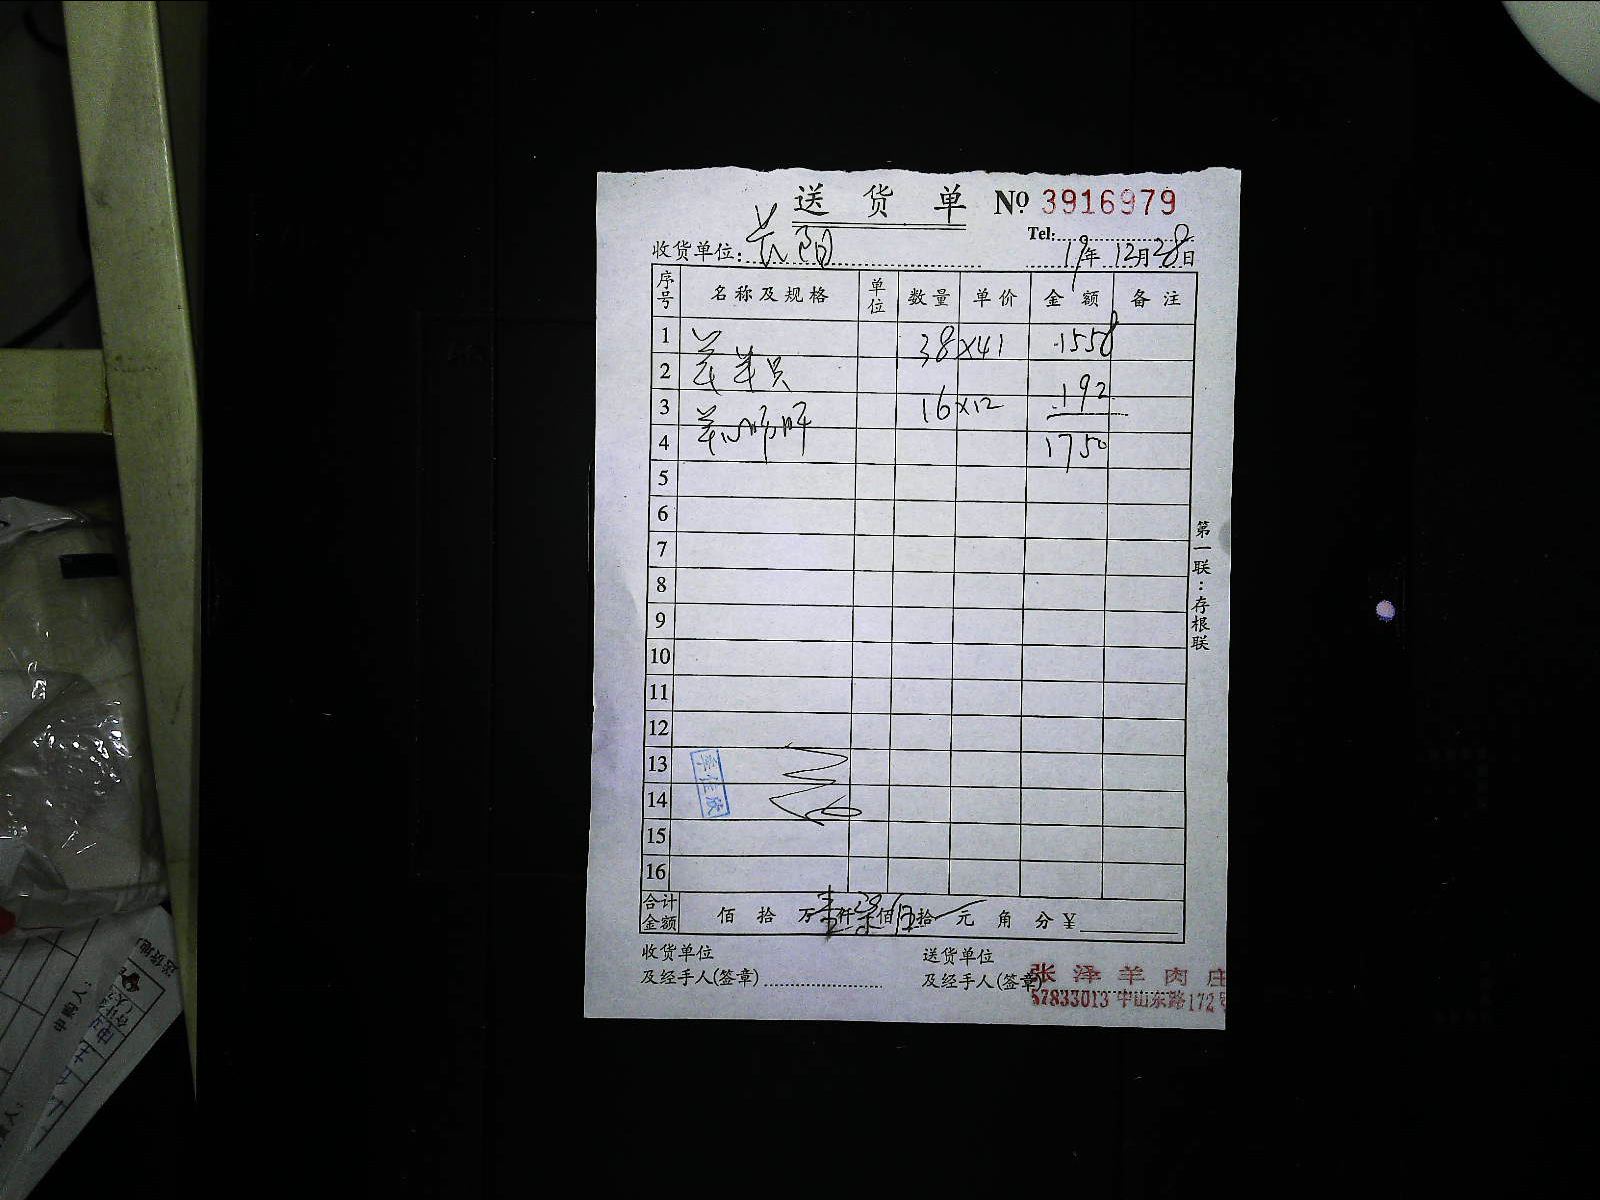 送 货 单 № 3916979
Tel:
收货单位: 长阳 19年 12月28日
序号 名称及规格 单位 数量 单价 金额 备注
1 38×41 1558
2 羊
3 羊心肺肝 16×12 192
4 1750
5
6
7
8
9
10
11
12
13
14
15
16
第一联:存根联
李佳欣
合计金额 佰 拾 万壹仟柒佰伍拾 元 角 分 ¥
收货单位 送货单位
及经手人(签章) 及经手人(签章)
张泽羊肉庄
57833013 中山东路172号
送货地
申购人:
合计